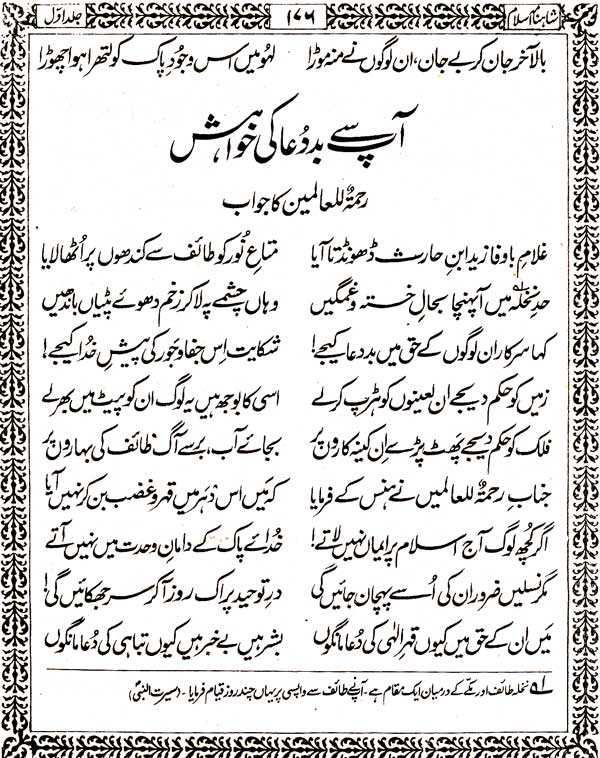 شاہنامۂ اسلام ۱۷۶ جلد اوّل
بالآخر جان کر بے جان، ان لوگوں نے منہ موڑا لہو میں اس وجُودِ پاک کو لتھڑا ہوا چھوڑا
آپ سے بددُعا کی خواہش
رحمۃٌ للعالمین کا جواب
غلامِ باوفا زیدؓ ابنِ حارث ڈھونڈتا آیا متاعِ نُور کو طائف سے کندھوں پر اُٹھا لایا
حدِ نخلہ۱؎ میں آ پہنچا بحالِ خستہ و غمگیں وہاں چشمے پہ لا کر زخم دھوئے پٹیاں باندھیں
کہا سرکار ان لوگوں کے حق میں بددعا کیجے! شکایت اِس جفا و جَور کی پیشِ خُدا کیجے!
زمیں کو حکم دیجے ان لعینوں کو ہڑپ کر لے اسی کا بوجھ ہیں یہ لوگ ان کو پیٹ میں بھر لے
فلک کو حکم دیجے پھٹ پڑے اِن کینہ کاروں پر بجائے آب، برسے آگ طائف کی بہاروں پر
جناب رحمۃٌ للعالمیں نے ہنس کے فرمایا کہ مَیں اس دہر میں قہر و غضب بن کر نہیں آیا
اگر کچھ لوگ آج اسلام پر ایماں نہیں لاتے! خُدائے پاک کے دامانِ وحدت میں نہیں آتے
مگر نسلیں ضرور ان کی اُسے پہچان جائیں گی درِ توحید پر اک روز آ کر سر جھکائیں گی!
مَیں ان کے حق میں کیوں قہرِ الٰہی کی دُعا مانگوں بشر ہیں بے خبر ہیں کیوں تباہی کی دُعا مانگوں
۱؎ نخلہ طائف اور مکّے کے درمیان ایک مقام ہے۔ آپؐ نے طائف سے واپسی پر یہاں چند روز قیام فرمایا۔ (سیرت النبیؐ)